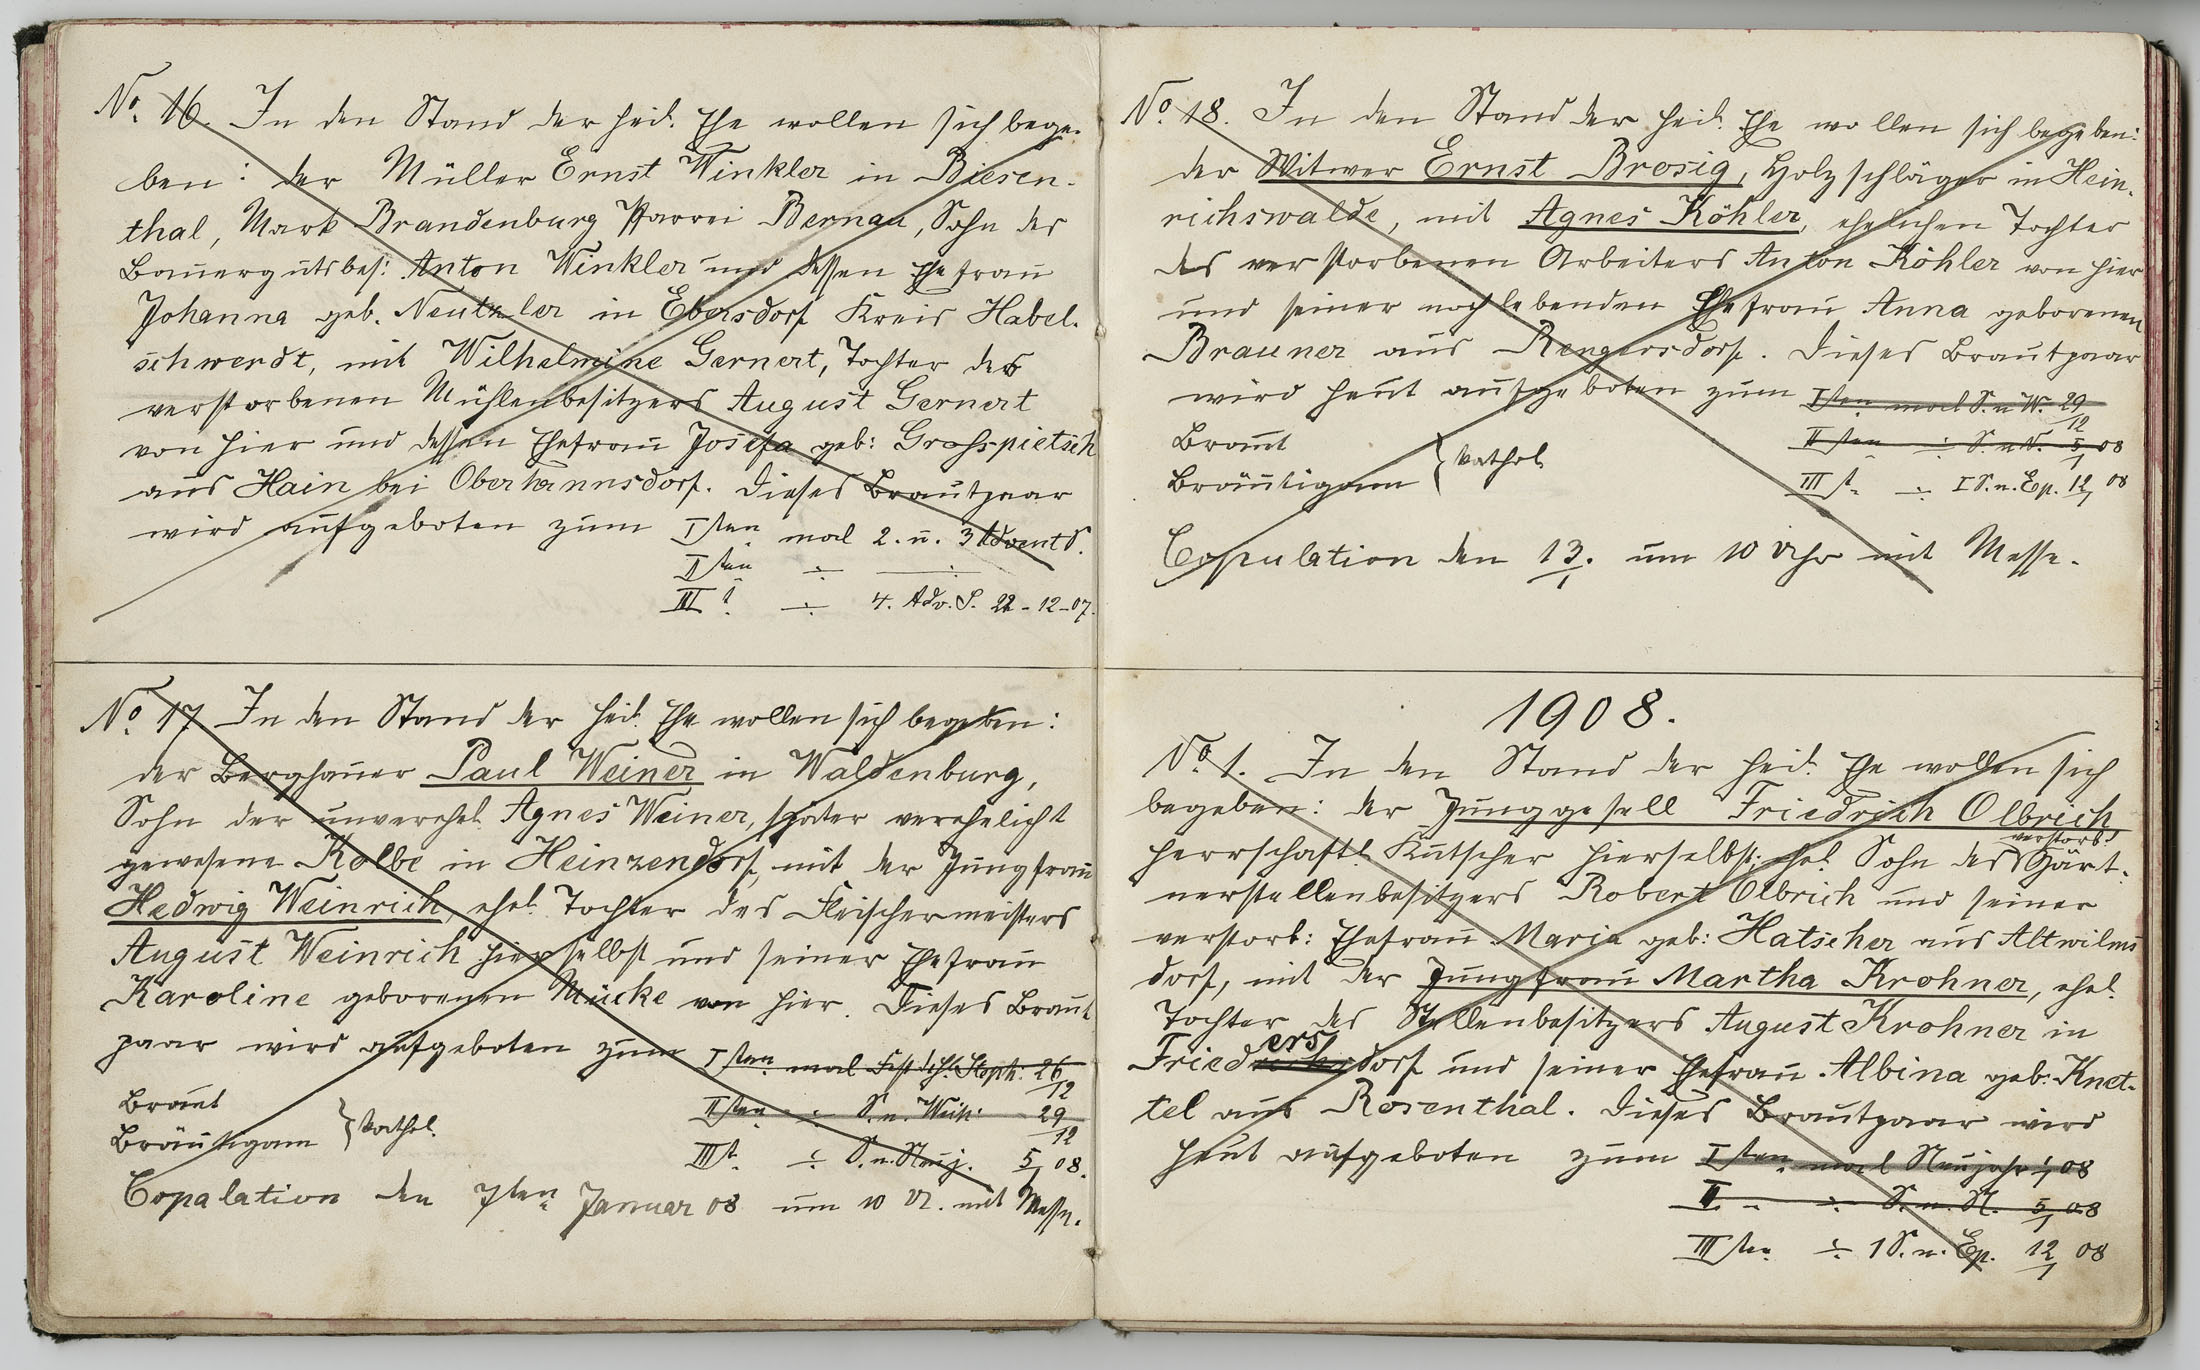 No. 16. In den Stand der heil. Ehe wollen sich bege-
ben: der Müller Ernst Winkler in Biesen-
thal, Mark Brandenburg Pfarrei Bernau, Sohn des
Bauergutsbes: Anton Winkler und dessen Ehefrau
Johanna geb. Neutzler in Ebersdorf Kreis Habel-
schwerdt, mit Wilhelmine Gernert, Tochter des
verstorbenen Mühlenbesitzers August Gernert
von hier und dessen Ehefrau Josefa geb: Grosspietsch
aus Hain bei Oberhannsdorf. Dieses Brautpaar
wird aufgeboten zum Isten mal 2. u. 3 Advent S.
IIten ÷ ÷
III t. ÷ 4. Adv. S. 22-12-07.
No. 17 In den Stand der heil. Ehe wollen sich begeben:
der Berghauer Paul Weiner in Waldenburg,
Sohn der unverehel. Agnes Weiner, später verehelicht
gewesene Kolbe in Heinzendorf, mit der Jungfrau
Hedwig Weinrich, ehel. Tochter des Fleischermeisters
August Weinrich hierselbst und seiner Ehefrau
Karoline geborenen Mücke von hier. Dieses Braut
paar wird aufgeboten zum Isten mal Fest d. hl. Steph: 26/12
Braut
Bräutigam } kathol.
IIten ÷ S. n. Weih: 29/12
III t. ÷ S. n. Neuj. 5/1 08.
Copalation den 7ten Januar 08 um 10 U. mit Messe.
No. 18. In den Stand der heil. Ehe wollen sich begeben:
der Witwer Ernst Brosig, Holzschläger in Hein-
richswalde, mit Agnes Köhler, ehelichen Tochter
des verstorbenen Arbeiters Anton Köhler von hier
und seiner noch lebenden Ehefrau Anna geborenen
Brauner aus Rengersdorf. Dieses Brautpaar
wird heut aufgeboten zum Isten mal S. n. W. 29/12
Braut
Bräutigam } kathol.
IIten ÷ S. n. N. 5/1 08
III t. ÷ I S. n. Ep. 12/1 08
Copulation den 13./1. um 10 Uhr mit Messe.
1908.
No. 1. In den Stand der heil. Ehe wollen sich
begeben: der Junggesell Friedrich Olbrich
herrschaftl. Kutscher hierselbst, ehel. Sohn des verstorb. Gärt-
nerstellenbesitzers Robert Olbrich und seiner
verstorb: Ehefrau Maria geb: Hatscher aus Altwilms
dorf, mit der Jungfrau Martha Krohner, ehel.
Tochter des Stellenbesitzers August Krohner in
Friedersdorf und seiner Ehefrau Albina geb: Knet-
tel aus Rosenthal. Dieses Brautpaar wird
heut aufgeboten zum Isten mal Neujahr 1/1 08
II ÷ S. n. N. 5/1 08
III ten ÷ 1 S. n. Ep. 12/1 08